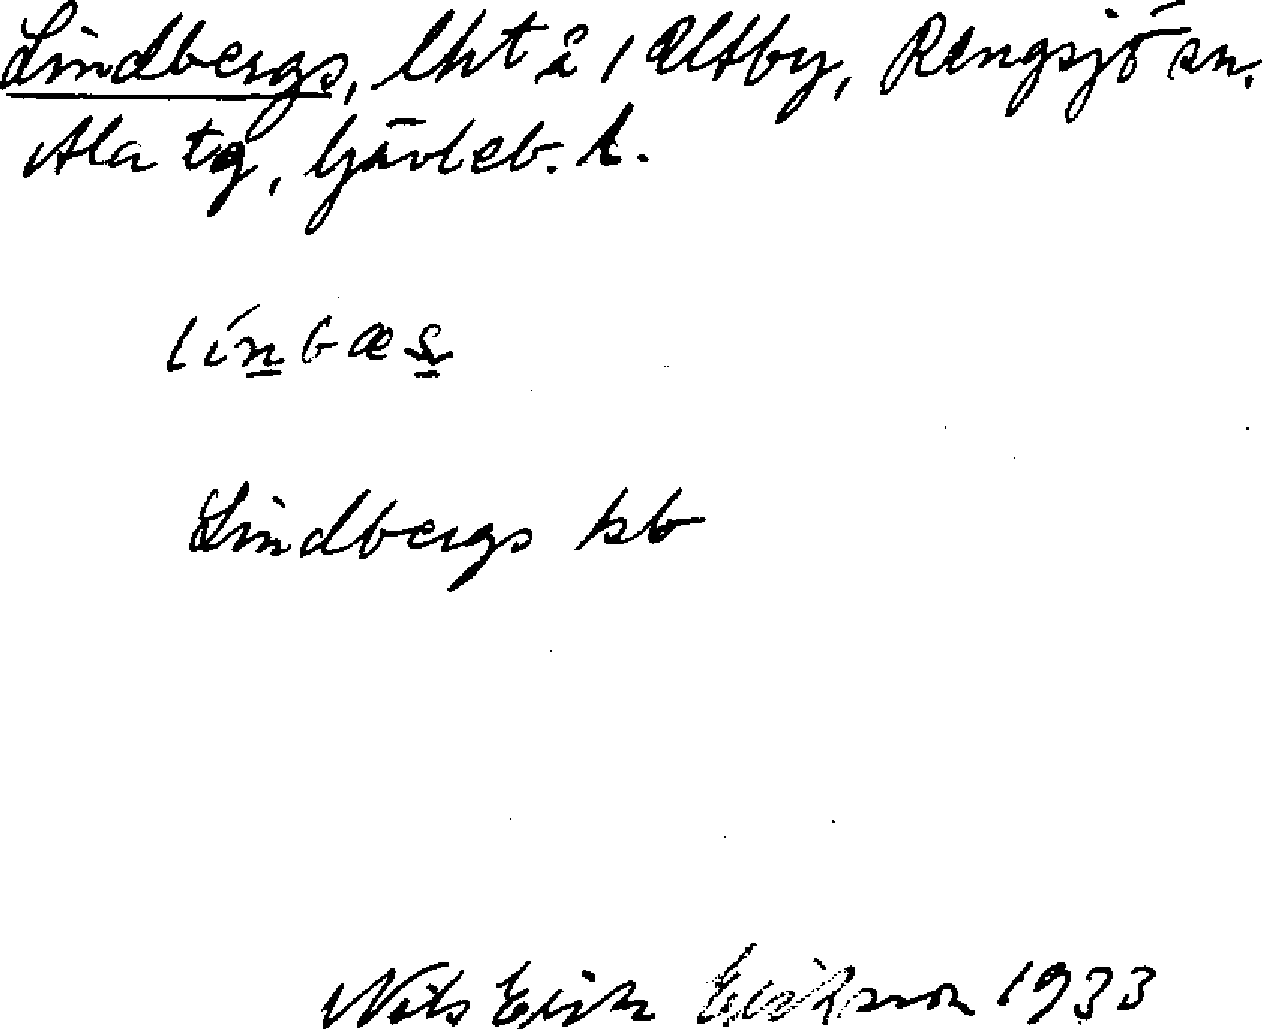 Lindbergs, lht å 1 Altby, Rengsjö sn.
Ala tg, Gävleb. l.
línbæs
Lindbergs kb
Nils Erik Erikson 1933